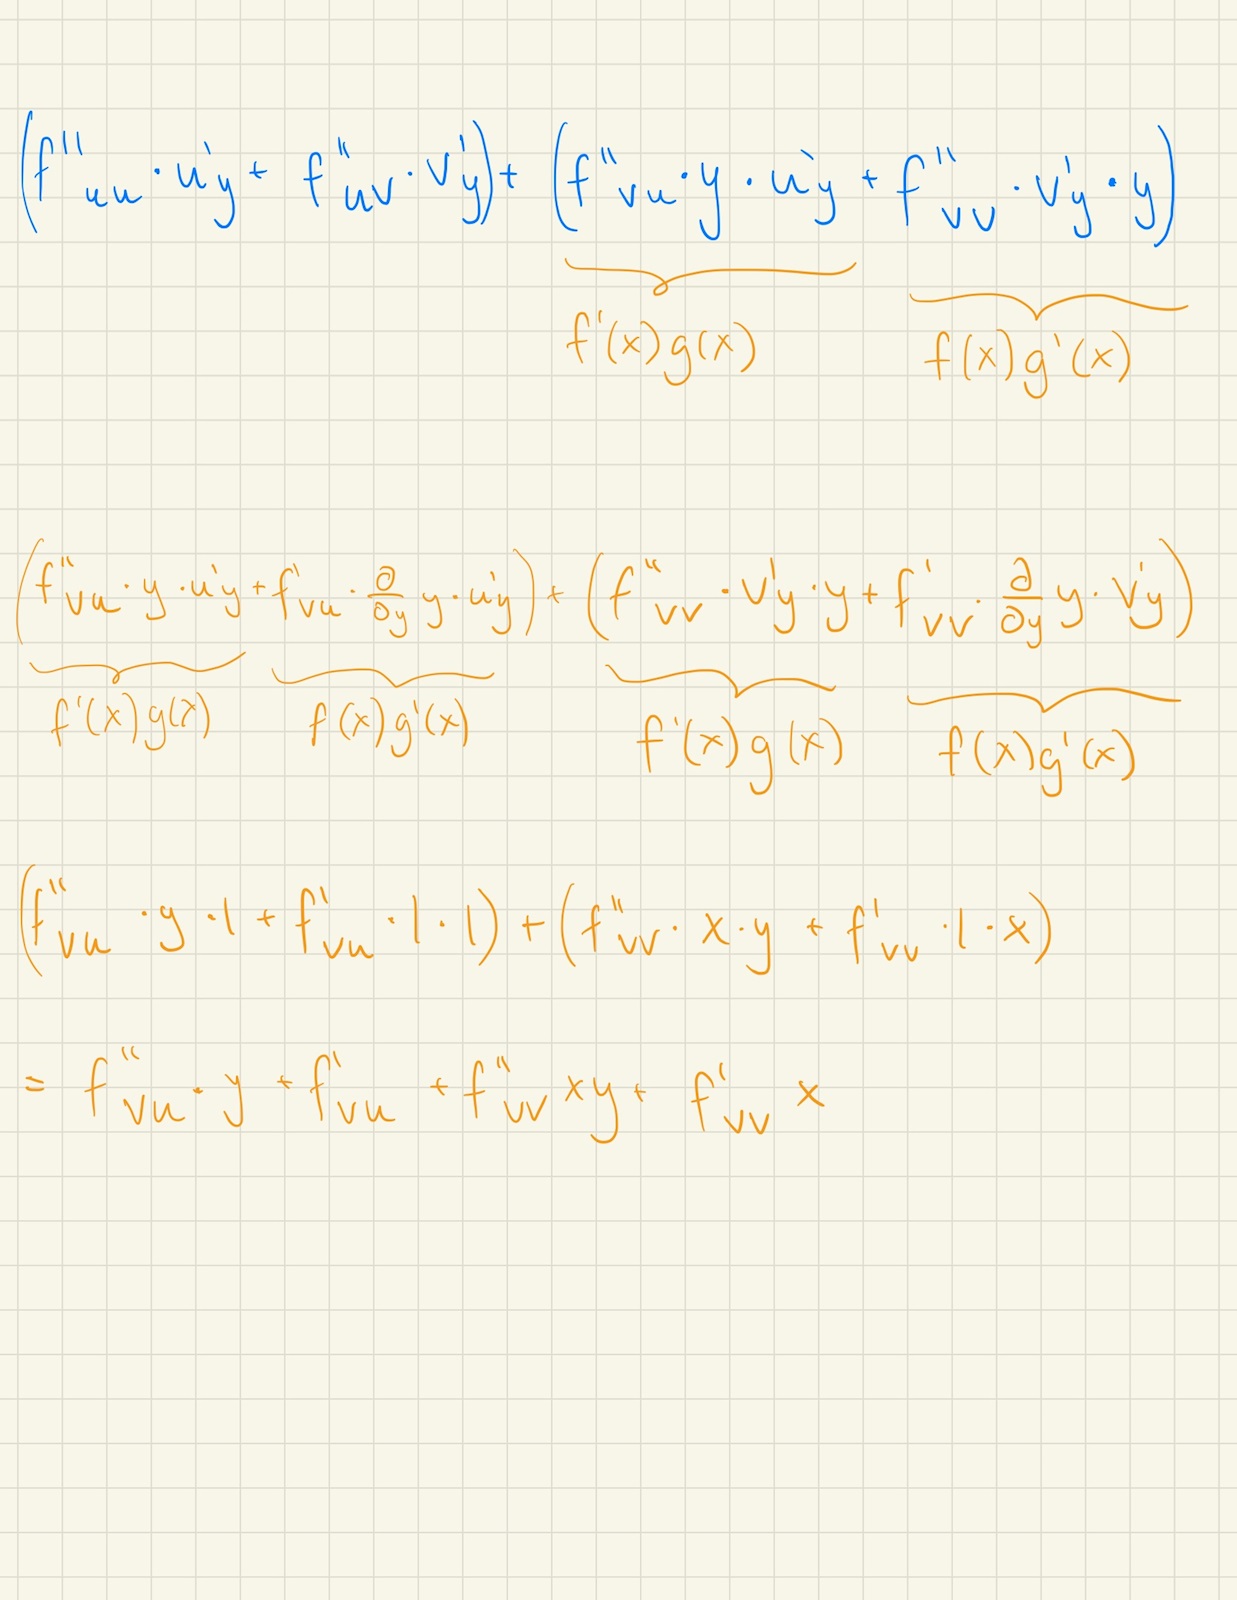 (f''uu · u'y + f''uv · v'y) + (f''vu · y · u'y + f''vv · v'y · y)
f'(x)g(x) f(x)g'(x)
(f''vu · y · u'y + f'vu · ∂/∂y y · u'y) + (f''vv · v'y · y + f'vv · ∂/∂y y · v'y)
f'(x)g(x) f(x)g'(x) f'(x)g(x) f(x)g'(x)
(f''vu · y · 1 + f'vu · 1 · 1) + (f''vv · x · y + f'vv · 1 · x)
= f''vu · y + f'vu + f''vv xy + f'vv x